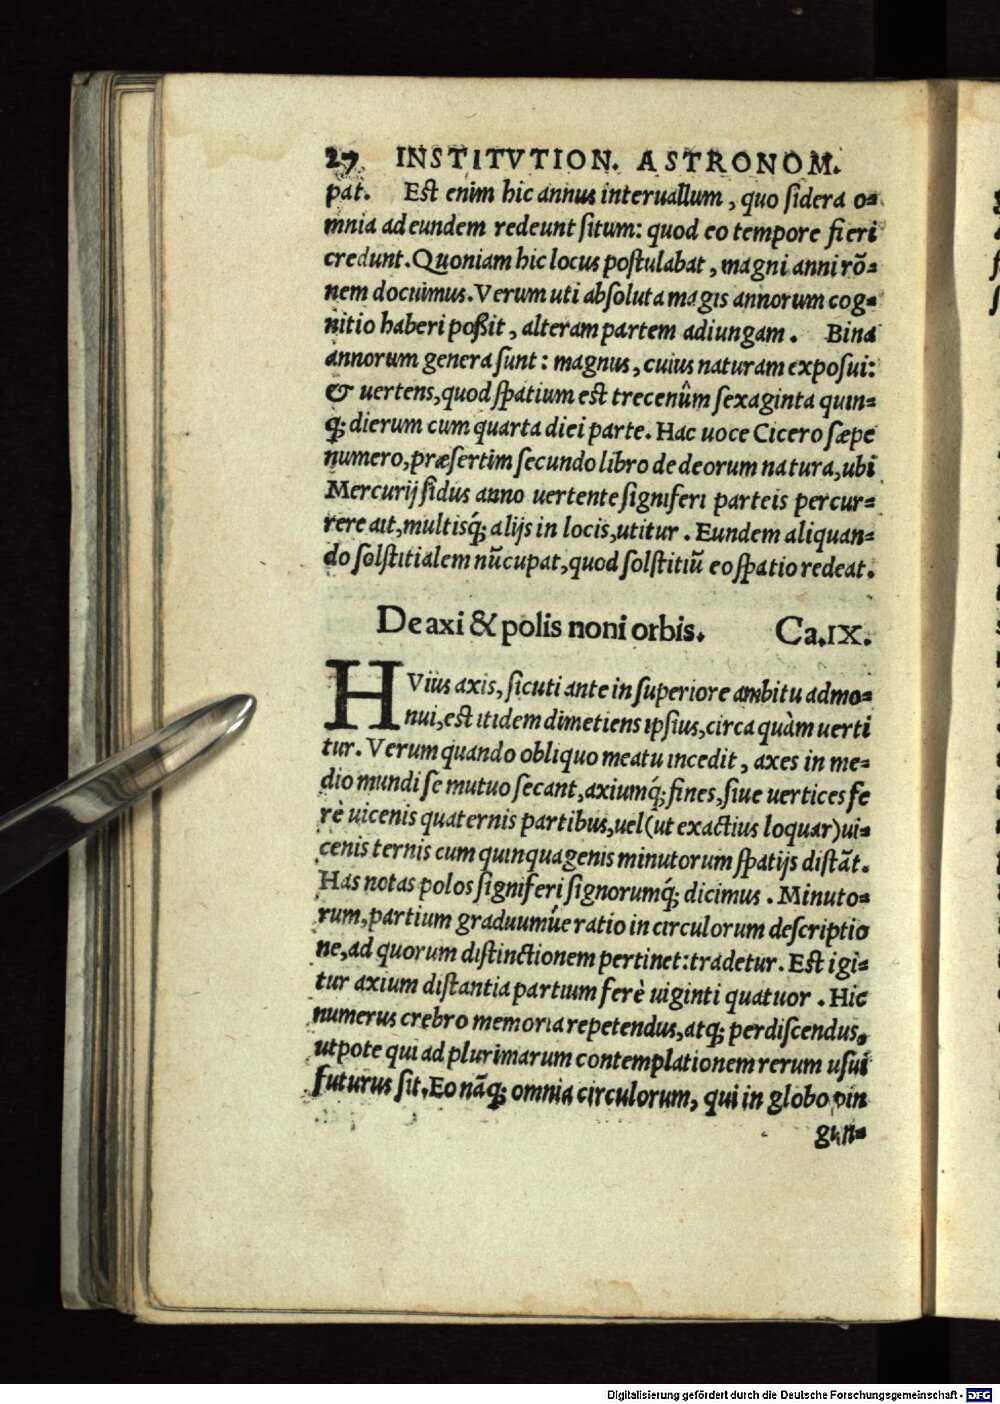 27 INSTITVTION. ASTRONOM.
pat. Est enim hic annus interuallum, quo sidera o=
mnia ad eundem redeunt situm: quod eo tempore fieri
credunt. Quoniam hic locus postulabat, magni anni rõ=
nem docuimus. Verum uti absoluta magis annorum cog=
nitio haberi poßit, alteram partem adiungam. Bina
annorum genera sunt: magnus, cuius naturam exposui:
& uertens, quod spatium est trecenûm sexaginta quin=
q; dierum cum quarta diei parte. Hac uoce Cicero sæpe
numero, præsertim secundo libro de deorum natura, ubi
Mercurij sidus anno uertente signiferi parteis percur=
rere ait, multisq́; alijs in locis, utitur. Eundem aliquan=
do solstitialem nũcupat, quod solstitiũ eo spatio redeat.
De axi & polis noni orbis. Ca. IX.
HVius axis, sicuti ante in superiore ambitu admo=
nui, est itidem dimetiens ipsius, circa quàm uerti
tur. Verum quando obliquo meatu incedit, axes in me=
dio mundi se mutuo secant, axiumq́; fines, siue uertices fe
rè uicenis quaternis partibus, uel (ut exactius loquar) ui=
cenis ternis cum quinquagenis minutorum spatijs distãt.
Has notas polos signiferi signorumq́; dicimus. Minuto=
rum, partium graduumúe ratio in circulorum descriptio
ne, ad quorum distinctionem pertinet: tradetur. Est igi=
tur axium distantia partium ferè uiginti quatuor. Hic
numerus crebro memoria repetendus, atq; perdiscendus,
utpote qui ad plurimarum contemplationem rerum usui
futurus sit. Eo nãq; omnia circulorum, qui in globo pin
gun=
Digitalisierung gefördert durch die Deutsche Forschungsgemeinschaft - DFG